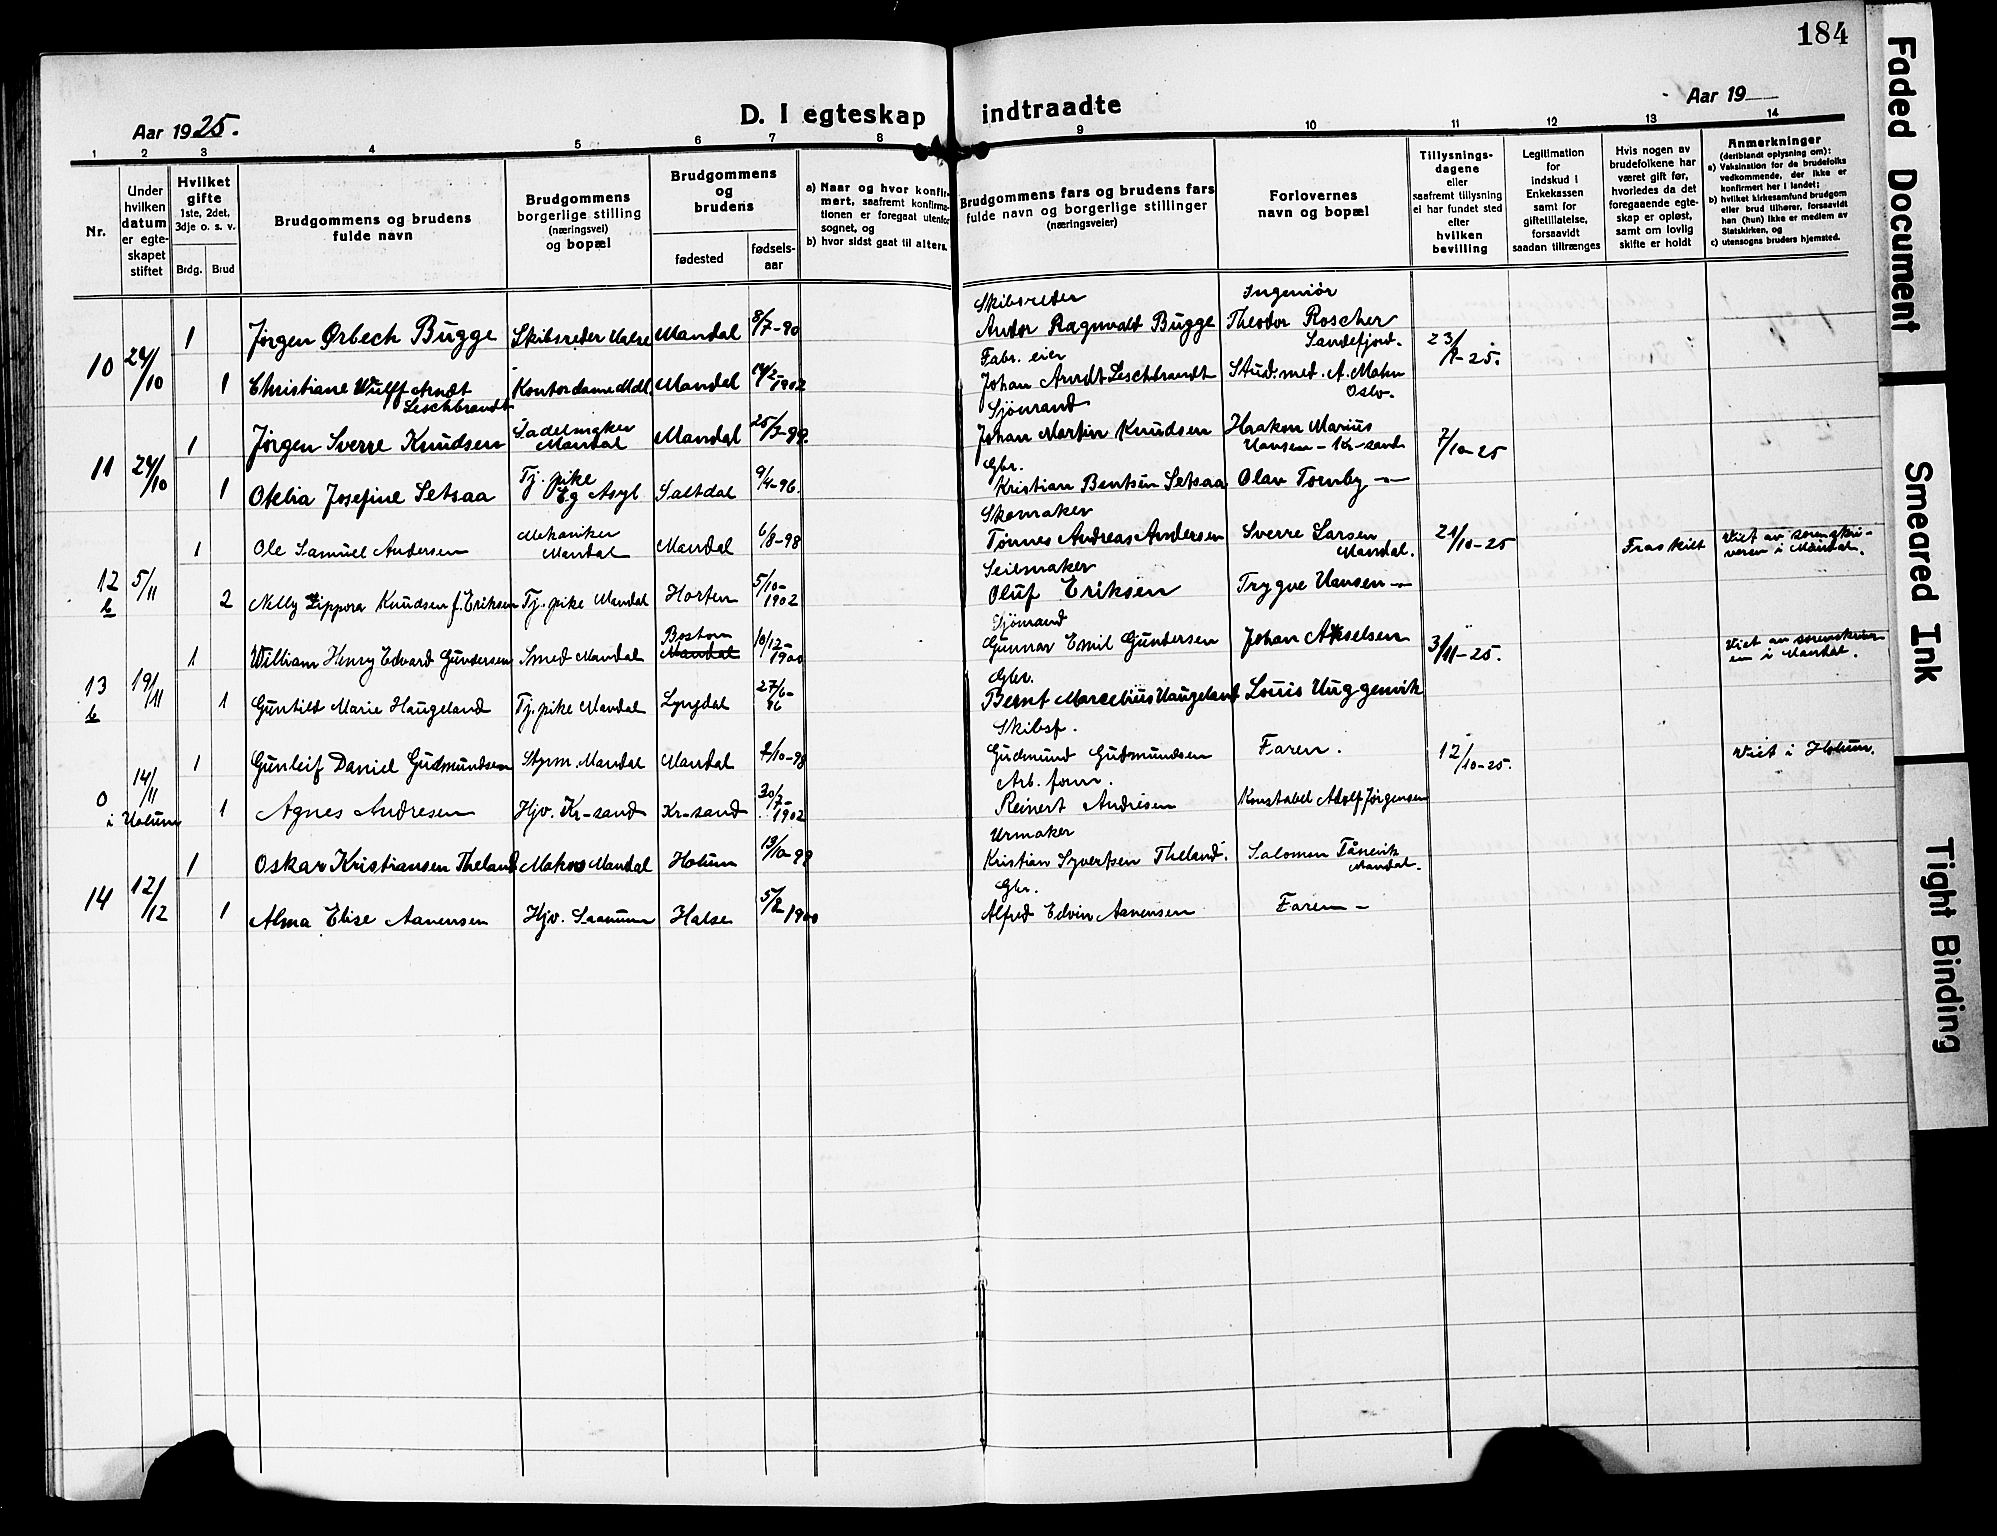 184
Aar 1925.
D. I egteskap indtraadte
Aar 19
1 2 3 4 5 6 7 8 9 10 11 12 13 14
Nr.
Under hvilken datum er egteskapet stiftet
Hvilket gifte
1ste, 2det, 3dje o. s. v.
Brdg. Brud
Brudgommens og brudens fulde navn
Brudgommens borgerlige stilling (næringsvei) og bopæl
Brudgommens og brudens
fødested
fødsels-aar
a) Naar og hvor konfirmert, saafremt konfirmationen er foregaat utenfor sognet, og
b) hvor sidst gaat til alters.
Brudgommens fars og brudens fars fulde navn og borgerlige stillinger (næringsveier)
Forlovernes navn og bopæl
Tillysnings-dagene eller saafremt tillysning ei har fundet sted efter hvilken bevilling
Legitimation for indskud i Enkekassen samt for giftetillatelse, forsaavidt saadan tiltrænges
Hvis nogen av brudefolkene har været gift før, hvorledes da det foregaaende egteskap er opløst, samt om lovlig skifte er holdt
Anmerkninger
(deriblandt oplysning om):
a) Vaksination for de brudefolks vedkommende, der ikke er konfirmert her i landet;
b) hvilket kirkesamfund brudgom eller brud tilhører, forsaavidt han (hun) ikke er medlem av Statskirken, og
c) utensogns bruders hjemsted.
10 24/10
1 Jørgen Ørbech Bugge Skibsreder Halse Mandal 8/7-90
Skibsreder Andor Ragnvald Bugge
Ingeniør Theodor Roscher Sandefjord.
23/8-25.
1 Christiane Wulff Arndt Leschbrandt Kontordame Mdl. Mandal 14/2-1902
Fabr. eier Johan Arndt Leschbrandt
Stud. med. A. Mohn Oslo.
11 24/10
1 Jørgen Sverre Knudsen Sadelmaker Mandal Mandal 25/7-99.
Sjömand Johan Martin Knudsen
Haakon Marius Hansen - Kr-sand
7/10-25
1 Otelia Josefine Setsaa Tj. pike Eg Asyl Saltdal 9/4-96.
Gbr. Kristian Bentsen Setsaa
Olav Tornby -"-
12 b 5/11
1 Ole Samuel Andersen Mekaniker Mandal Mandal 6/8-98
Skomaker Tønnes Andreas Andersen
Sverre Larsen Mandal.
21/10-25
Fraskilt
Viet av sorenskriveren i Mandal.
2 Nelly Zippora Knudsen f. Eriksen Tj. pike Mandal Horten 5/10-1902
Seilmaker Oluf Eriksen
Trygve Hansen -"-
13 b 19/11
1 William Henry Edvard Gundersen Smed Mandal Boston Mandal 10/12-1900
Sjömand Gunnar Emil Gundersen
Johan Akselsen
3/11-25.
Viet av sorenskriveren i Mandal.
1 Guntild Marie Haugeland Tj. pike Mandal Lyngdal 27/6-86
Gbr. Bernt Marcelius Haugeland
Louis Uuggenvik
0 14/11 i Holum
1 Gunleif Daniel Gudmundsen Styrm. Mandal Mandal 2/10-98
Skibsf. Gudmund Gudmundsen
Faren.
12/10-25.
Viet i Holum.
1 Agnes Andresen Hjv. Kr-sand Kr-sand 30/7-1902
Arb. form. Reinert Andresen
Konstabel Adolf Jørgensen
14 12/12
1 Oskar Kristiansen Theland Mandal Holum 13/10-98
Urmaker Kristian Syvertsen Theland.
Salomon Tånevik Mandal.
1 Alma Elise Aanensen Hjv. Saanum Halse 5/2 1900
Gbr. Alfred Edvin Aanensen
Faren -
Faded Document
Smeared Ink
Tight Binding